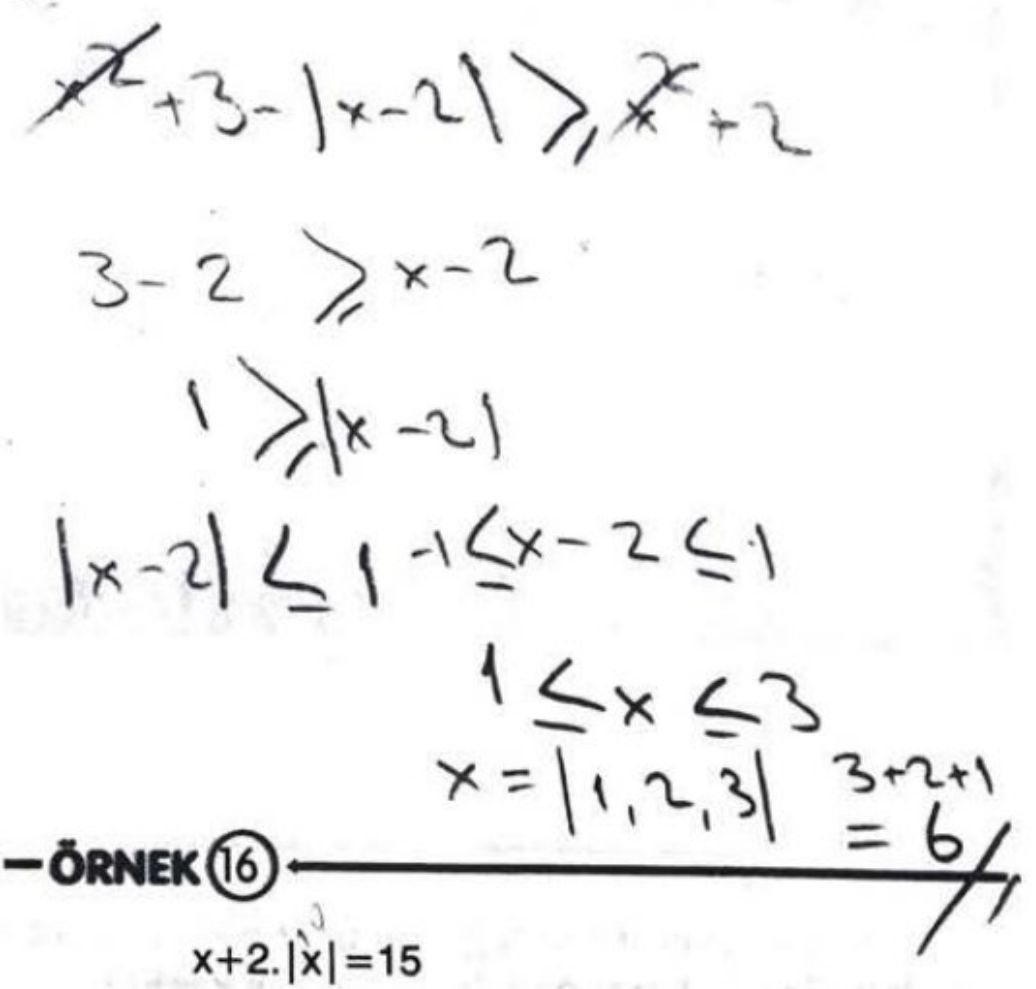 x²+3-|x-2| ≥ x²+2
3-2 ≥ x-2
1 ≥ |x-2|
|x-2| ≤ 1 -1 ≤ x-2 ≤ 1
1 ≤ x ≤ 3
x = |1,2,3| 3+2+1
= 6
ÖRNEK 16
x+2.|x|=15